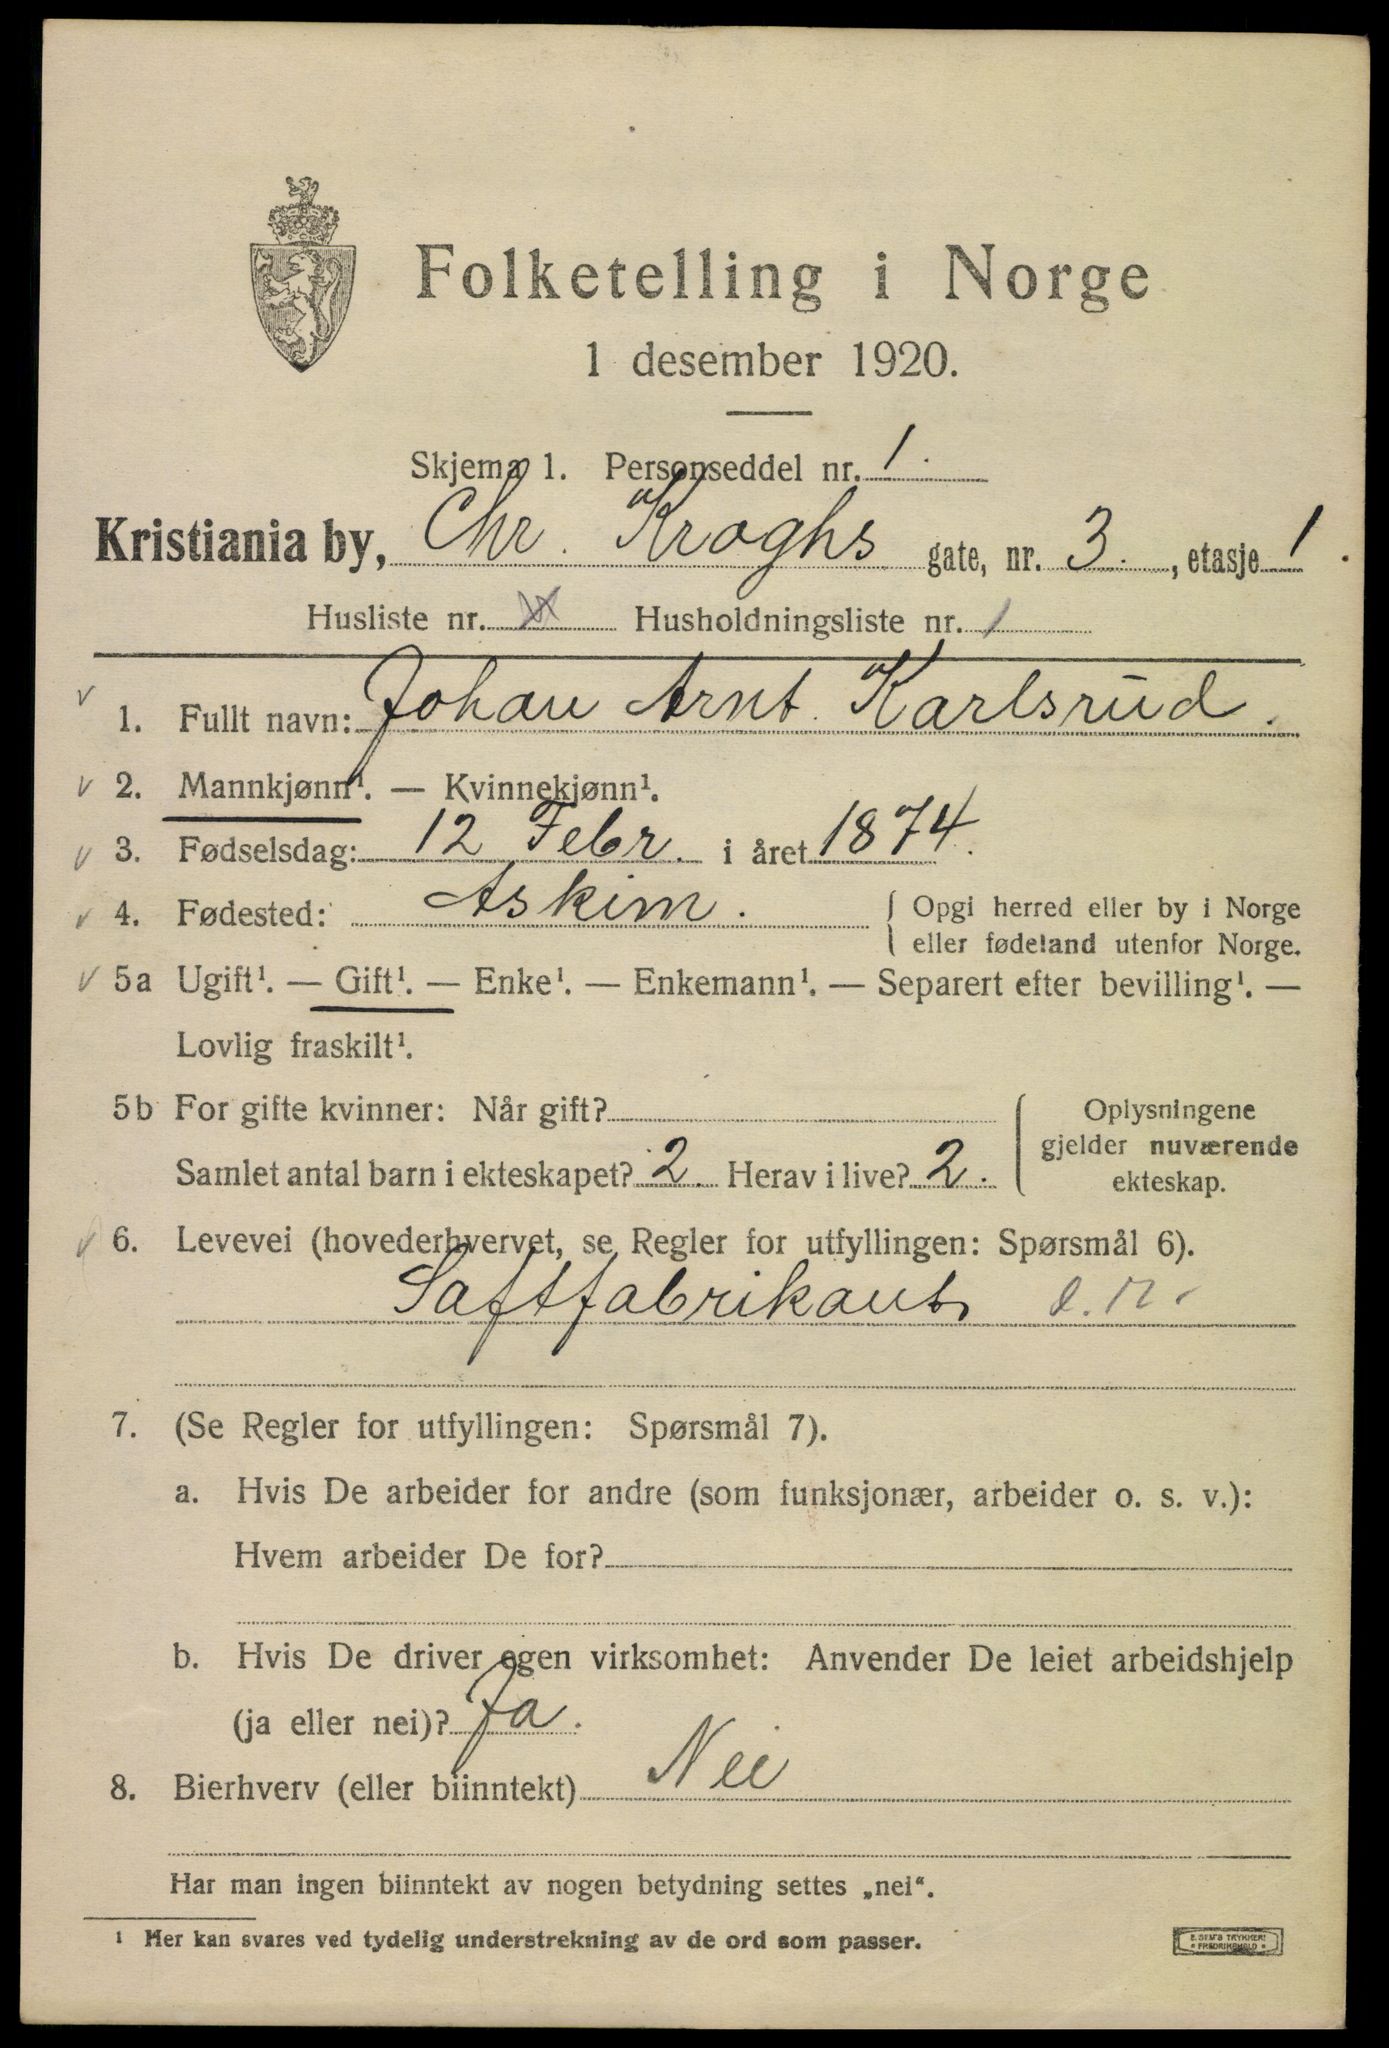 Folketelling i Norge
1 desember 1920.
Skjema 1. Personseddel nr. 1.
Kristiania by, Chr. Kroghs gate, nr. 3., etasje 1.
Husliste nr. Husholdningsliste nr. 1
1. Fullt navn: Johan Arnt Karlsrud.
2. Mannkjønn¹. — Kvinnekjønn¹.
3. Fødselsdag: 12 Febr. i året 1874.
4. Fødested: Askim. Opgi herred eller by i Norge
eller fødeland utenfor Norge.
5a Ugift¹. — Gift¹. — Enke¹. — Enkemann¹. — Separert efter bevilling¹. —
Lovlig fraskilt¹.
5b For gifte kvinner: Når gift? Oplysningene
gjelder nuværende
Samlet antal barn i ekteskapet? 2. Herav i live? 2. ekteskap.
6. Levevei (hovederhvervet, se Regler for utfyllingen: Spørsmål 6).
Saftfabrikant
7. (Se Regler for utfyllingen: Spørsmål 7).
a. Hvis De arbeider for andre (som funksjonær, arbeider o. s. v.):
Hvem arbeider De for?
b. Hvis De driver egen virksomhet: Anvender De leiet arbeidshjelp
(ja eller nei)? Ja.
8. Bierhverv (eller biinntekt) Nei
Har man ingen biinntekt av nogen betydning settes „nei“.
¹ Her kan svares ved tydelig understrekning av de ord som passer.
E. SEM'S TRYKKERI
• FREDRIKSHALD •